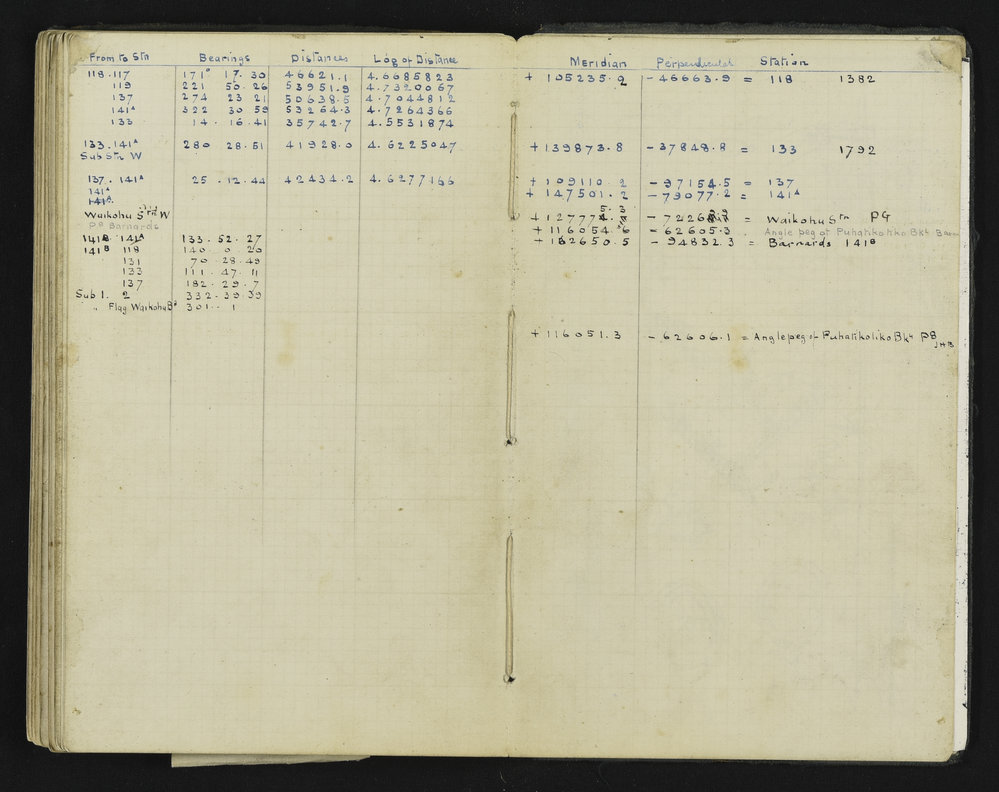 From to Stn Bearings Distances Log of Distance
118.117 171° 17.30 46621.1 4.6685823
119 221 50.26 53951.9 4.7320067
137 274 23 21 50638.5 4.7044812
141ᴬ 322 30 59 53264.3 4.7264366
133 14.16.41 35742.7 4.5531874
133.141ᴬ 280 28.51 41928.0 4.6225047
Sub Stn W
137.141ᴬ 25.12.44 42434.2 4.6277166
141ᴬ
141ᴬ
Waikohu Stn W
P.P Barnards
141ᴮ 141ᴬ 133.52.27
141ᴮ 118 140.0.20
131 70.28.49
133 111.47.11
137 182.29.7
Sub 1. 2 332.39.39
" Flag Waikohu Bᵈ 301..1
Meridian Perpendicular Station
+105235.2 -46663.9 = 118 1382
+139873.8 -37848.8 = 133 1792
+109110.2 -97154.5 = 137
+147501.2 -79077.2 = 141ᴬ
5.3
+127774. -7226 = Waikohu Stn PG
+116054.6 -62605.3 Angle peg of Puhatikotiko Bkh
+132650.5 -94832.3 = Barnards 141ᴮ
+116051.3 -62606.1 = Angle peg of Puhatikotiko Bkh PB
JHB